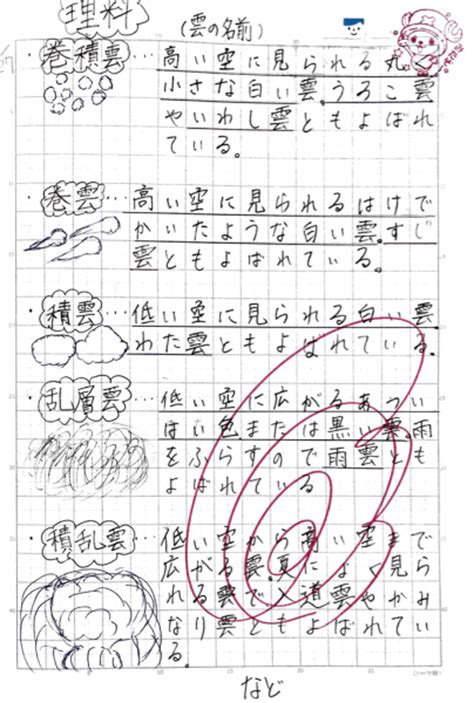 理料
(雲の名前)
巻積雲…高い空に見られる丸
小さな白い雲。うろこ雲
やいわし雲ともよばれ
ている。
・巻雲…高い空に見られるはけで
かいたような白い雲。すじ
雲ともよばれている。
・積雲…低い空に見られる白い雲。
わた雲ともよばれている。
・乱層雲…低い空に広がるあつい
はい色または黒い雲。雨
をふらすので雨雲とも
よばれている
・積乱雲…低い空から高い空まで
広がる雲。夏によく見ら
れる雲で入道雲やかみ
なり雲ともよばれてい
る。
など